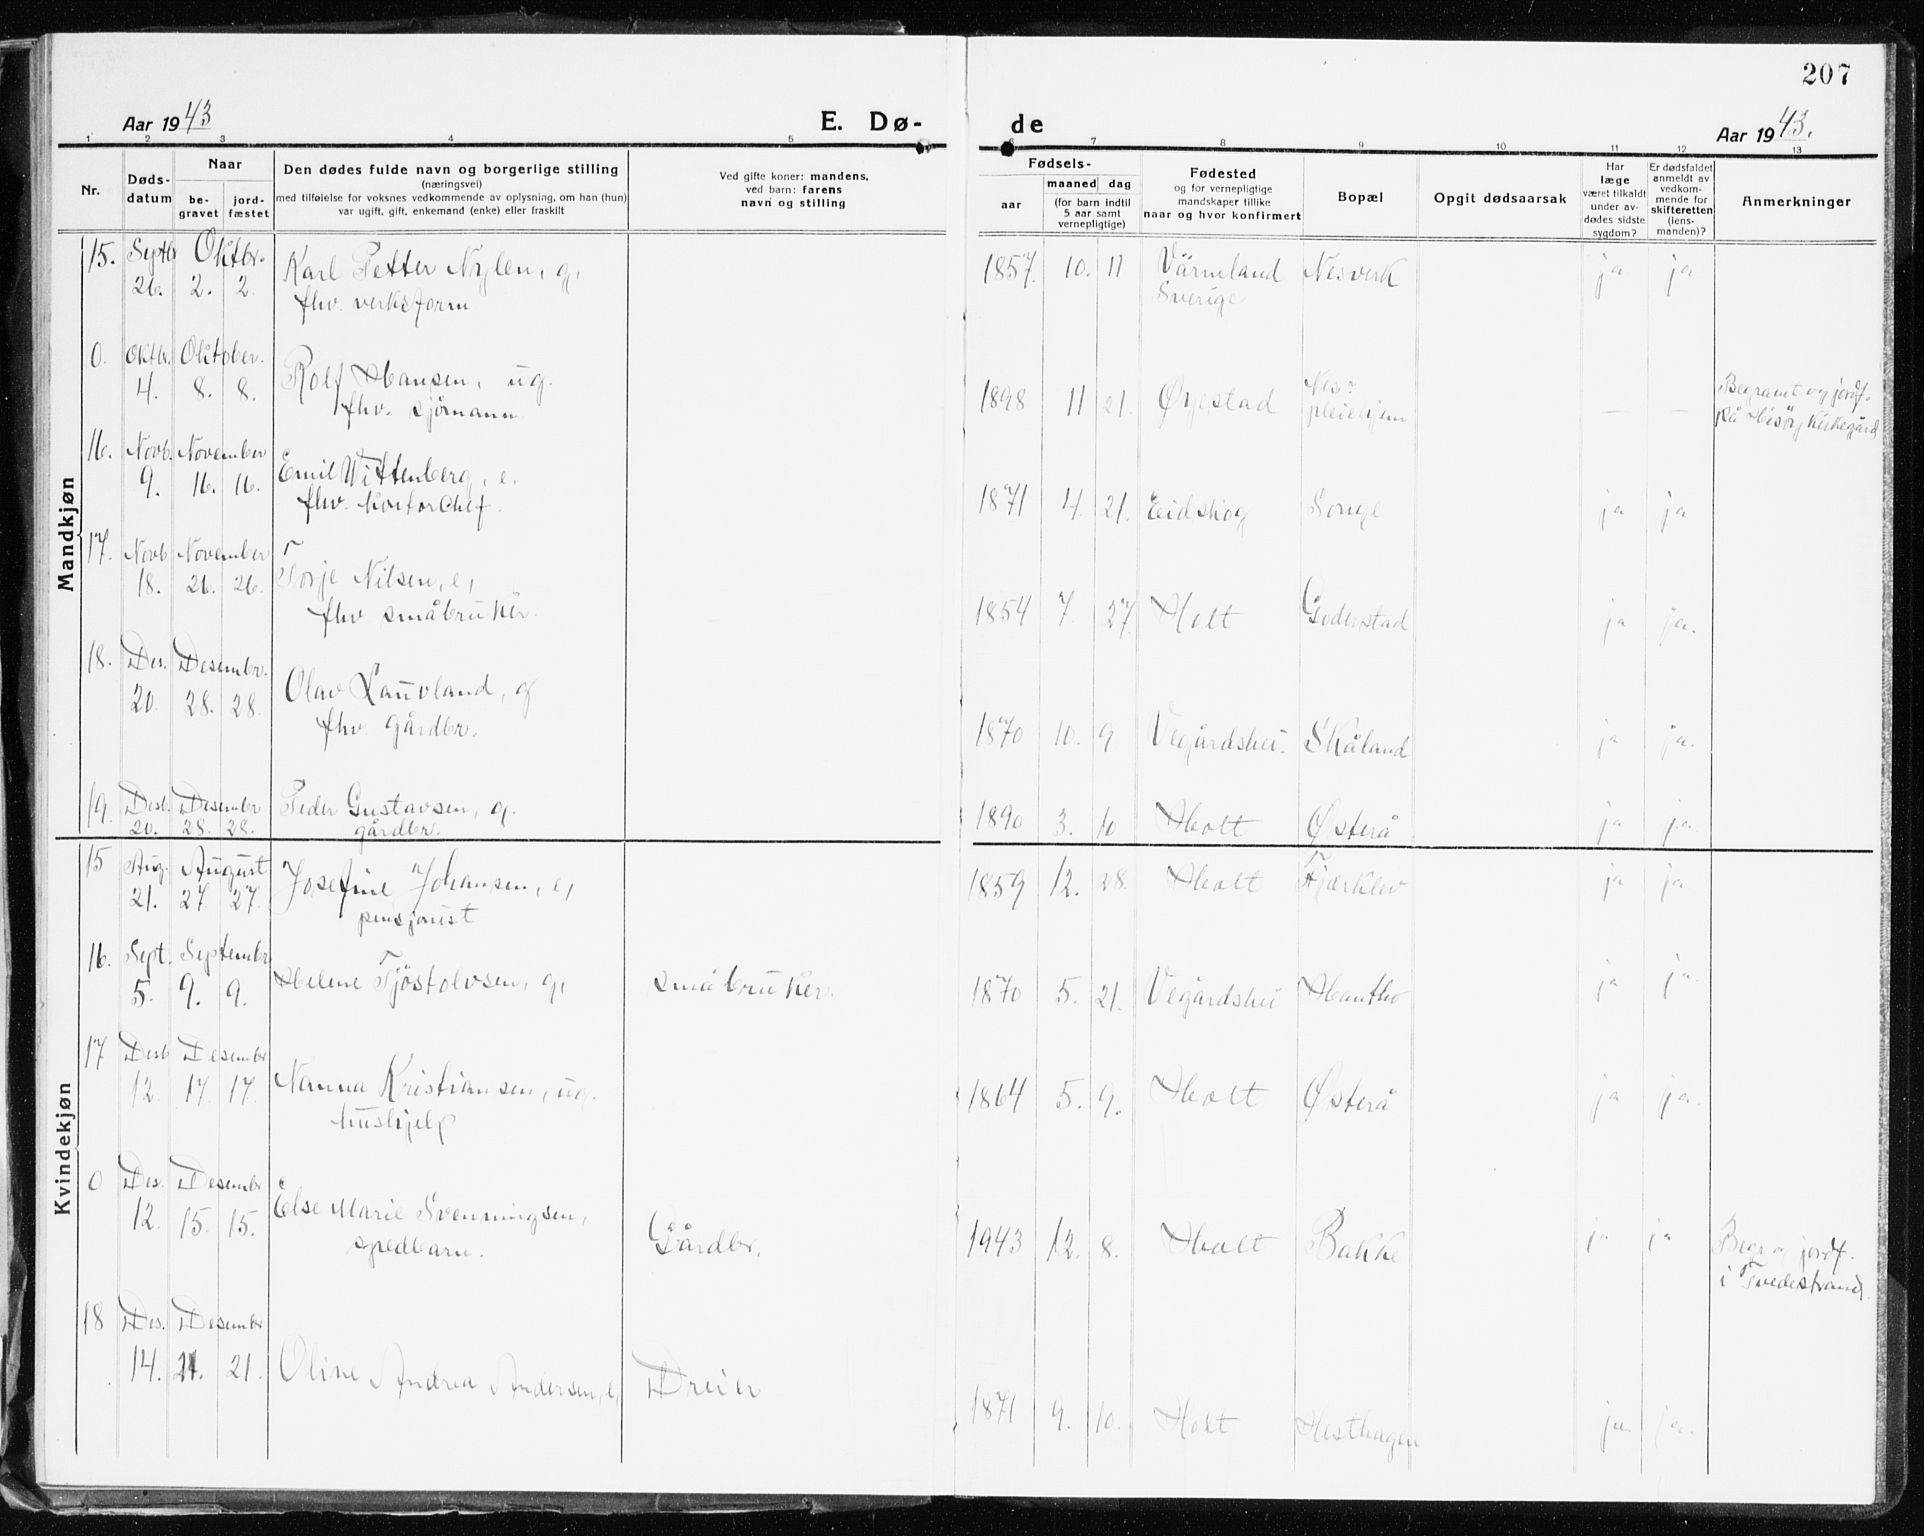 207
Aar 1943
E. Dø-
de
Aar 1943.
1 2 3 4 5 6 7 8 9 10 11 12 13
Nr.
Døds-
datum
Naar
be-
gravet
jord-
fæstet
Den dødes fulde navn og borgerlige stilling
(næringsvei)
med tilføielse for voksnes vedkommende av oplysning, om han (hun)
var ugift, gift, enkemand (enke) eller fraskilt
Ved gifte koner: mandens,
ved barn: farens
navn og stilling
Fødsels-
aar
maaned dag
(for barn indtil
5 aar samt
vernepligtige)
Fødested
og for vernepligtige
mandskaper tillike
naar og hvor konfirmert
Bopæl
Opgit dødsaarsak
Har
læge
været tilkaldt
under av-
dødes sidste
sygdom?
Er dødsfaldet
anmeldt av
vedkom-
mende for
skifteretten
(lens-
manden)?
Anmerkninger
Mandkjøn
15. Septbr Oktbr.
26. 2. 2. Karl Petter Nylen, g,
fhv. verksform
1857. 10. 11 Värmland Nesverk ja ja
Sverige
0. Oktbr. Oktober.
4. 8. 8. Rolf Hansen, ug.
fhv. sjømann
1898 11 21. Øyestad Nes
pleiehjem — —
Begravet og jordf.
på Hisøy kirkegård
16. Novb. November
9. 16. 16. Emil Wittenberg, e.
fhv. kontorchef.
1871 4. 21. Eidskog Songe ja ja
17. Novb November
18. 26. 26. Torje Nilsen, e,
fhv småbruker.
1854 7. 27. Holt Goderstad ja ja.
18. Des. Desembr.
20. 28. 28. Olav Lauvland, g
fhv. gårdbr.
1870 10. 9 Vegårdshei. Skåland ja ja.
19. Desb. Desember
20. 28. 28. Peder Gustavsen, g.
gårdbr.
1890 3. 10 Holt Østerå ja ja.
Kvindekjøn
15 Aug. August
21. 27. 27. Josefine Johansen, e,
pensjonist
1859 12. 28. Holt Fjærkleiv ja ja
16. Sept. Septembr
5. 9. 9. Helene Tjøstolvsen, g, småbruker.
1870 5. 21. Vegårdshei Hantho ja ja.
17 Desb Desember
12. 17. 17. Nanna Kristiansen, ug.
hushjelp
1864 5. 9. Holt Østerå ja ja.
0 Des. Desembr
12. 15. 15. Else Marie Svenningsen, Gårdbr.
spedbarn.
1943 12. 8. Holt Bakke ja ja
Begr og jordf.
i Tvedestrand.
18 Des. Desembr
14. 21. 21. Oline Andrea Andersen, e, Dreier
1871 9. 10. Holt Hesthagen ja. ja.